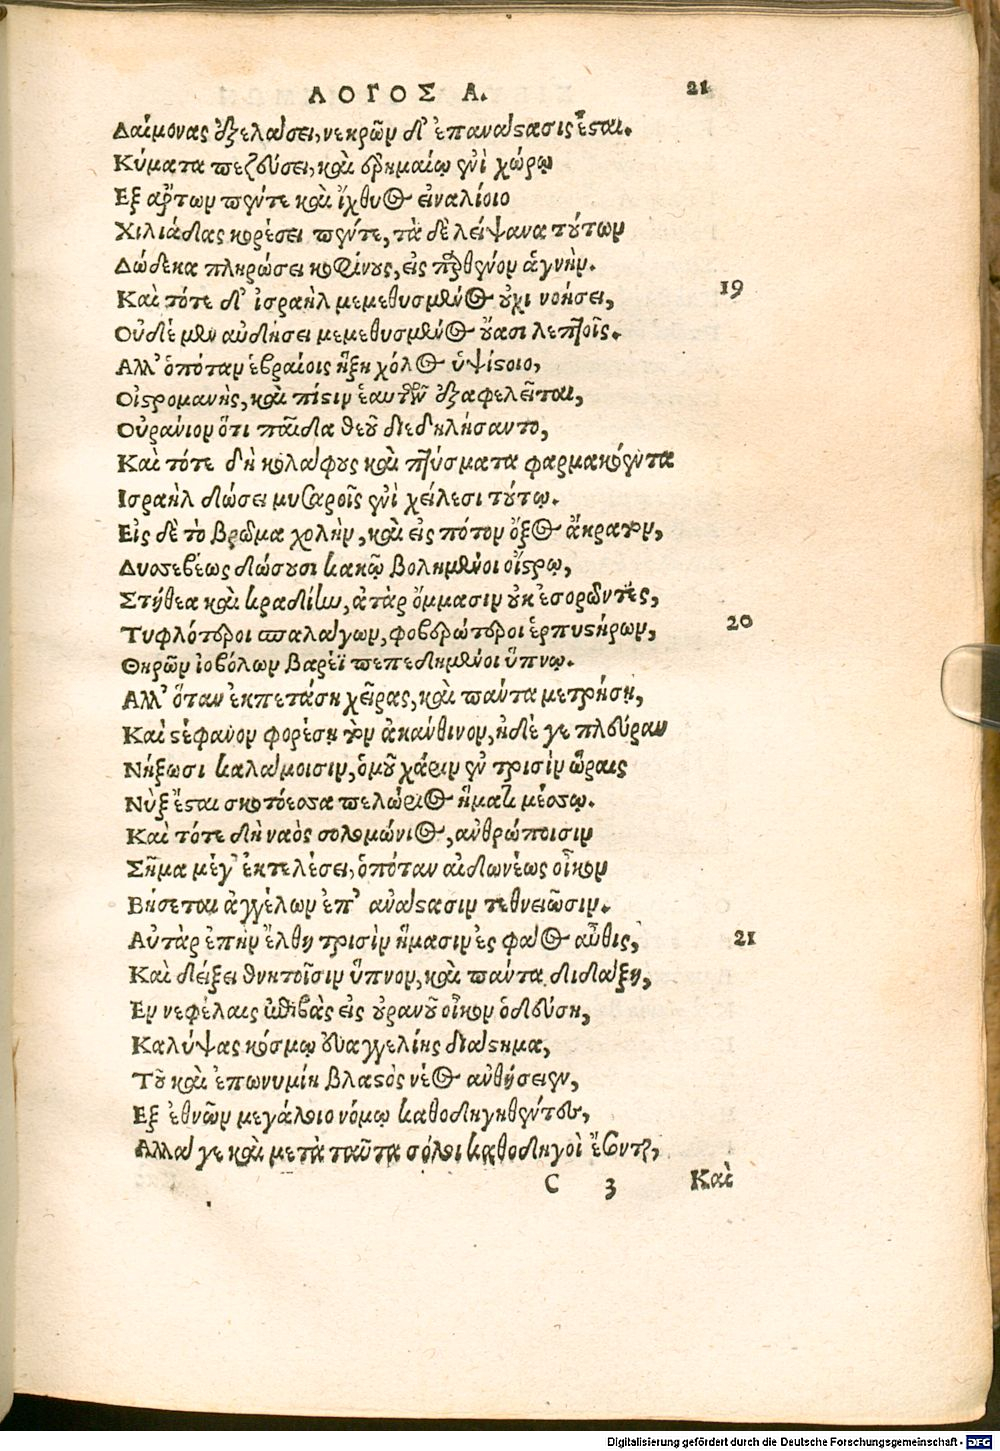 ΛΟΓΟΣ Α. 21
Δαίμονας ἐξελάσει, νεκρῶν δ' ἐπανάστασις ἔσται.
Κύματα πεζεύσει, καὶ ἐρημαίῳ ἐνὶ χώρῳ
Εξ ἄρτων πέντε καὶ ἰχθύος εἰναλίοιο
Χιλιάδας κορέσει πέντε, τὰ δὲ λείψανα τούτων
Δώδεκα πληρώσει κοφίνους, εἰς παρθένον ἁγνήν.
Καὶ τότε δ' ἰσραὴλ μεμεθυσμένος οὐχι νοήσει, 19
Οὐδὲ μὲν αὐδήσει μεμεθυσμένος οὔασι λεπτοῖς.
Αλλ' ὁπόταν ἑβραίοις ἥξη χόλος ὑψίστοιο,
Οἰστρομανὴς, καὶ πίστιν ἑαυτῶν ἐξαφελεῖται,
Οὐράνιον ὅτι παῖδα θεοῦ διεδηλήσαντο,
Καὶ τότε δὴ κολάφους καὶ πτύσματα φαρμακόεντα
Ισραὴλ δώσει μυσαροῖς ἐνὶ χείλεσι τούτῳ.
Εἰς δὲ τὸ βρῶμα χολὴν, καὶ εἰς πότον ὄξος ἄκρατον,
Δυσσεβέως δώσουσι κακῷ βολημένοι οἴστρῳ,
Στήθεα καὶ κραδίην, ἀτὰρ ὄμμασιν οὐκ ἐσορῶντες,
Τυφλότεροι σπαλάγων, φοβερώτεροι ἑρπυστήρων, 20
Θηρῶν ἰοβόλων βαρέϊ πεπεδημένοι ὕπνῳ.
Αλλ' ὅταν ἐκπετάση χεῖρας, καὶ πάντα μετρήση,
Καὶ στέφανον φορέση τὸν ἀκάνθινον, ἠδέ γε πλευρὰν
Νήξωσι καλάμοισιν, ὁμοῦ χάριν ἐν τρισὶν ὥραις
Νὺξ ἔσται σκοτόεσσα πελώριος ἤματι μέσσῳ.
Καὶ τότε δὴ ναὸς σολομώνιος, ἀνθρώποισιν
Σῆμα μέγ' ἐκτελέσει, ὁπόταν αἰδωνέως οἶκον
Βήσεται ἀγγέλων ἐπ' ἀνάστασιν τεθνειῶσιν.
Αὐτὰρ ἐπὴν ἔλθῃ τρισὶν ἤμασιν ἐς φάος αὖθις, 21
Καὶ δείξει θνητοῖσιν ὕπνον, καὶ πάντα διδάξῃ,
Εν νεφέλαις ἐπιβὰς εἰς οὐρανοῦ οἶκον ὁδεύση,
Καλύψας κόσμῳ εὐαγγελίης διάστημα,
Τοῦ καὶ ἐπωνυμίη βλαστὸς νέος ἀνθήσειεν,
Εξ ἐθνῶν μεγάλοιο νόμῳ καθοδηγηθέντων,
Αλλά γε καὶ μετὰ ταῦτα σόλοι καθοδηγοὶ ἔσονται,
C 3 Καὶ
Digitalisierung gefördert durch die Deutsche Forschungsgemeinschaft - DFG